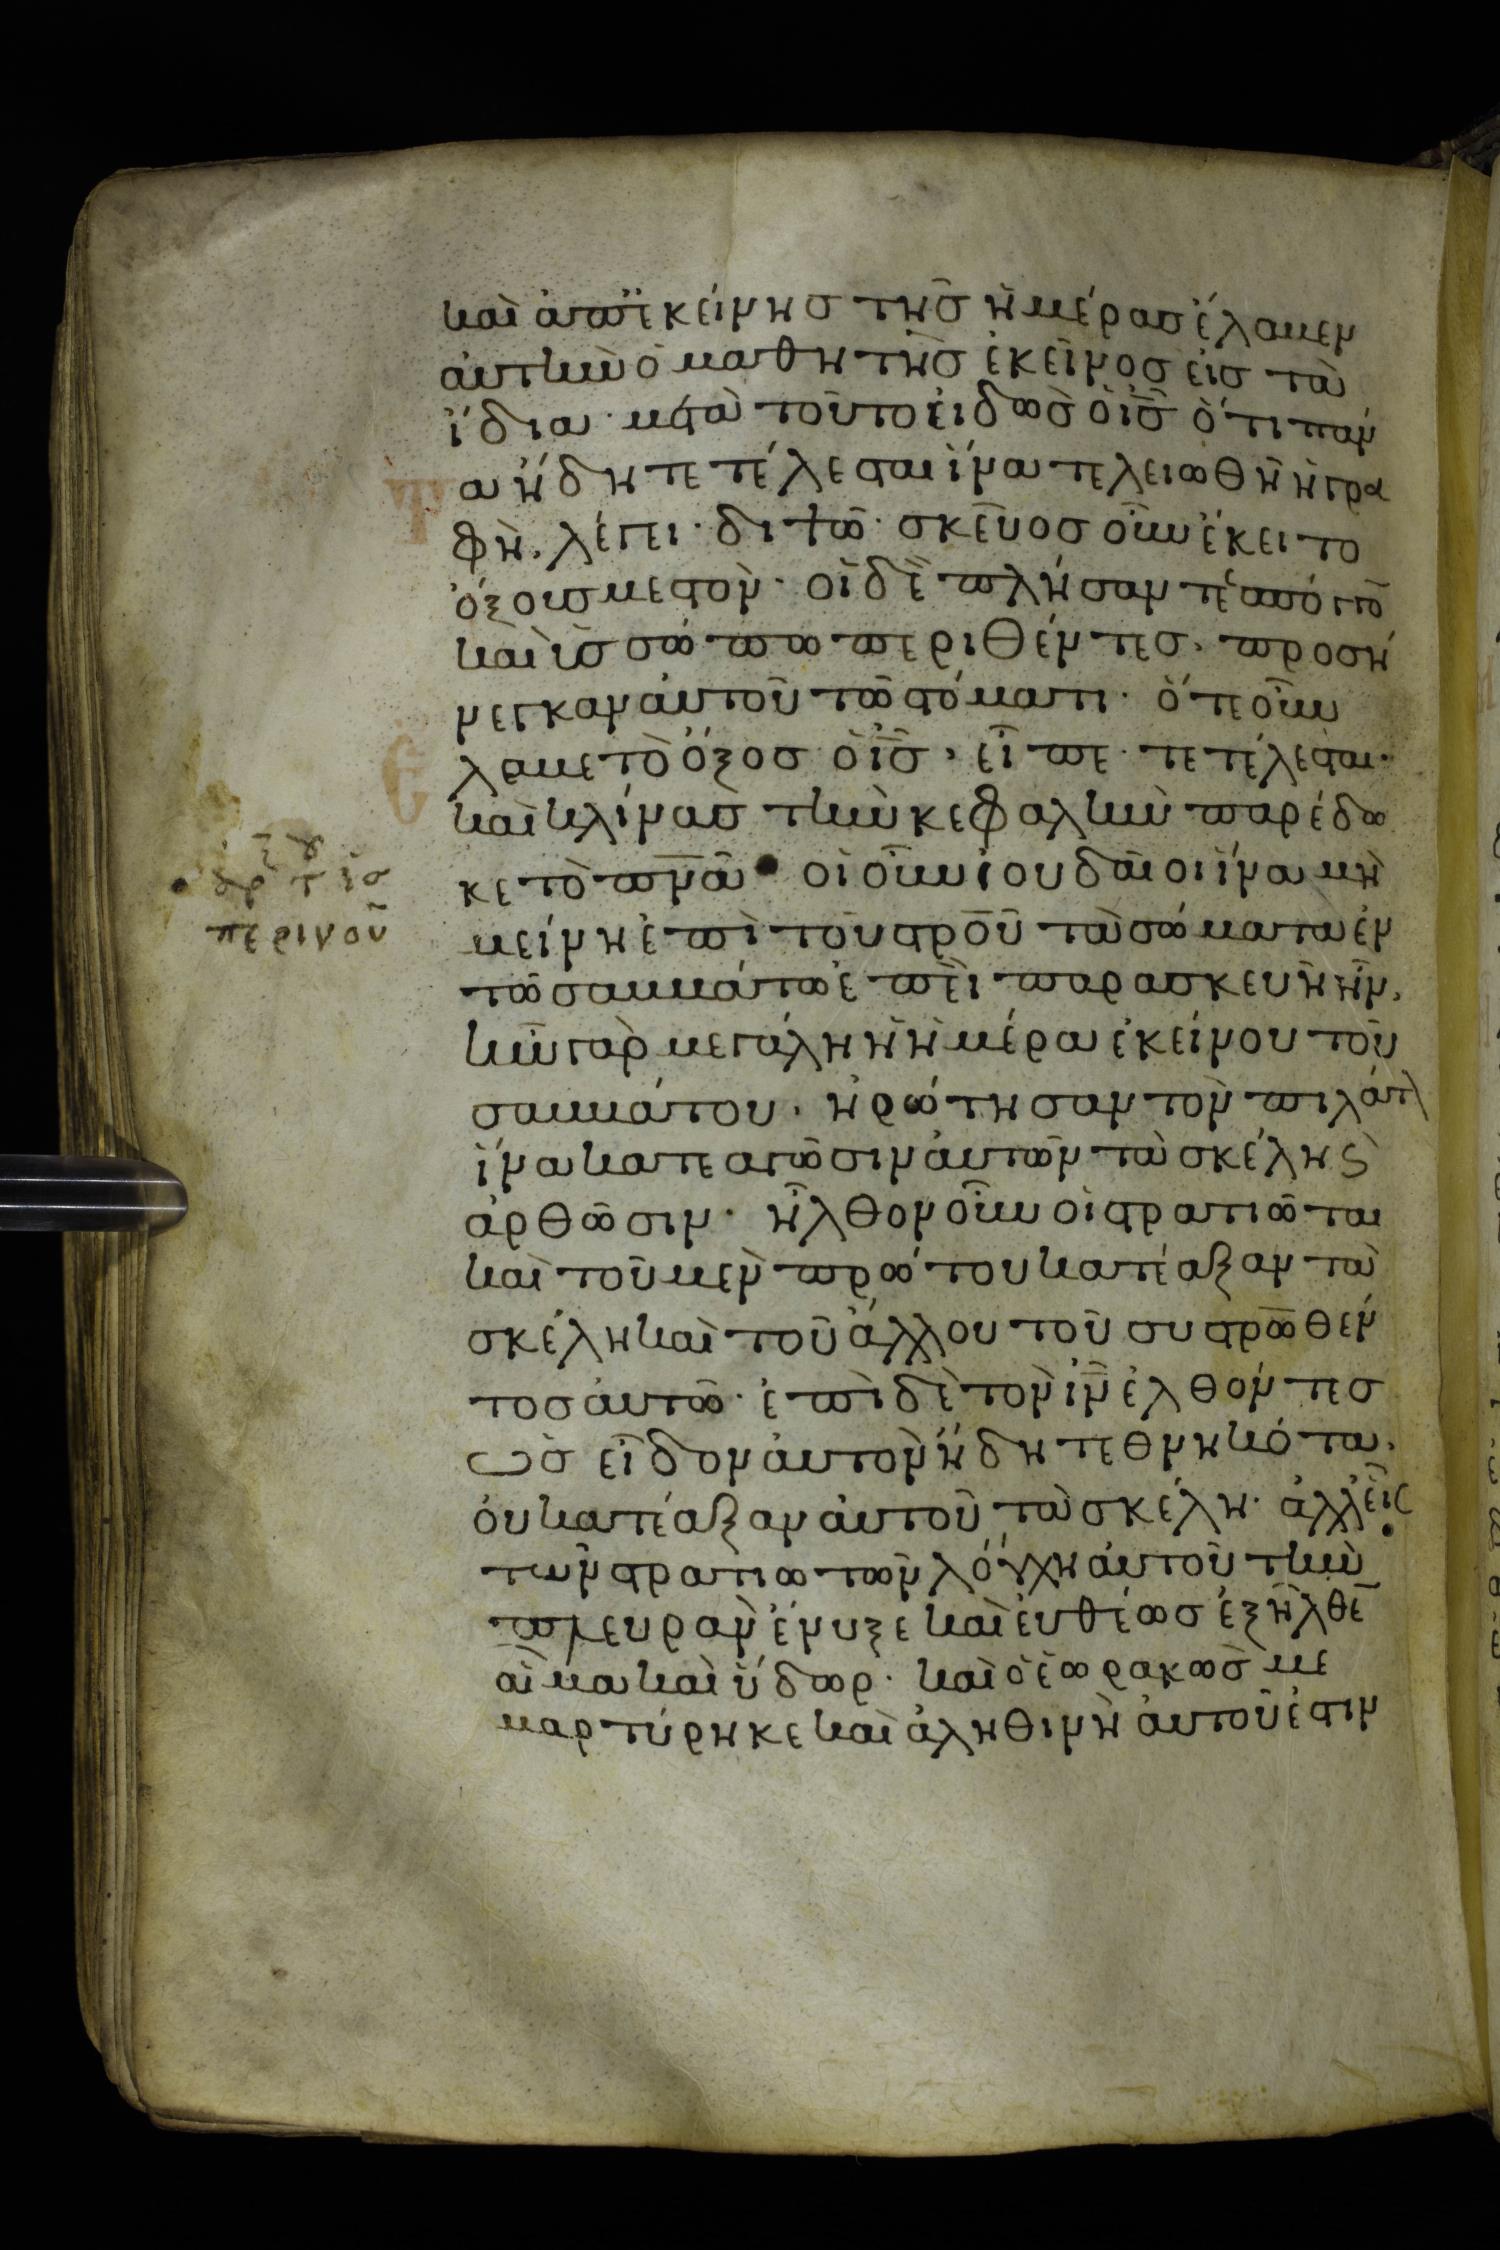 καὶ ἀπἐκείνης τῆς ἡμέρας ἔλαβεν
ἀυτὴν ὁ μαθητὴς ἐκεῖνος εἰς τὰ
ἴδια· μετὰ τοῦτο εἰδὼς ὁ ις ὅτι πάν
α ἤδη τετέλεσται ἵνα τελειωθῆ ἡ γρα
φὴ. λέγει· διψῶ· σκεῦος οὖν ἔκειτο
ὄξους μεστὸν· οἱ δὲ πλήσαντες σπόγγο
καὶ ὑσσώπω περιθέντες, προσή
νεγκαν ἀυτοῦ τῶ στόματι· ὅτε οὖν
λαβε τὸ ὄξος ὁ ις, εἶπε· τετέλεσται·
καὶ κλίνας τὴν κεφαλὴν παρέδω
κε τὸ πνα οἱ οὖν ἰουδαῖοι ἵνα μὴ
μείνη ἐπὶ τοῦ στρου τὰ σώματα ἐν
τῶ σαββάτω ἐπεὶ παρασκευὴ ἦν,
ἦν γὰρ μεγάλη ἡ ἡμέρα ἐκείνου τοῦ
σαββάτου, ἠρώτησαν τὸν πιλάτ
ἵνα κατεαγῶσιν ἀυτῶν τὰ σκέλη ϛ
ἀρθῶσιν· ἦλθον οὖν οἱ στρατιῶται
καὶ τοῦ μὲν πρώτου κατέαξαν τὰ
σκέλη καὶ τοῦ ἄλλου τοῦ συστρωθέν
τος ἀυτῶ· ἐπὶ δὲ τὸν ιν ἐλθόντες
ὡς εἶδον ἀυτὸν ἤδη τεθνηκότα,
ὀυ κατέαξαν ἀυτοῦ τὰ σκέλη· ἀλλεἷς
τῶν στρατιωτῶν λόγχη ἀυτοῦ τὴν
πλευρὰν ἔνυξε καὶ ἐυθέως ἐξῆλθε
αἷμα καὶ ὕδωρ· καὶ ὁ ἑωρακὼς με
μαρτύρηκε καὶ ἀληθινὴ ἀυτοῦ ἐστιν